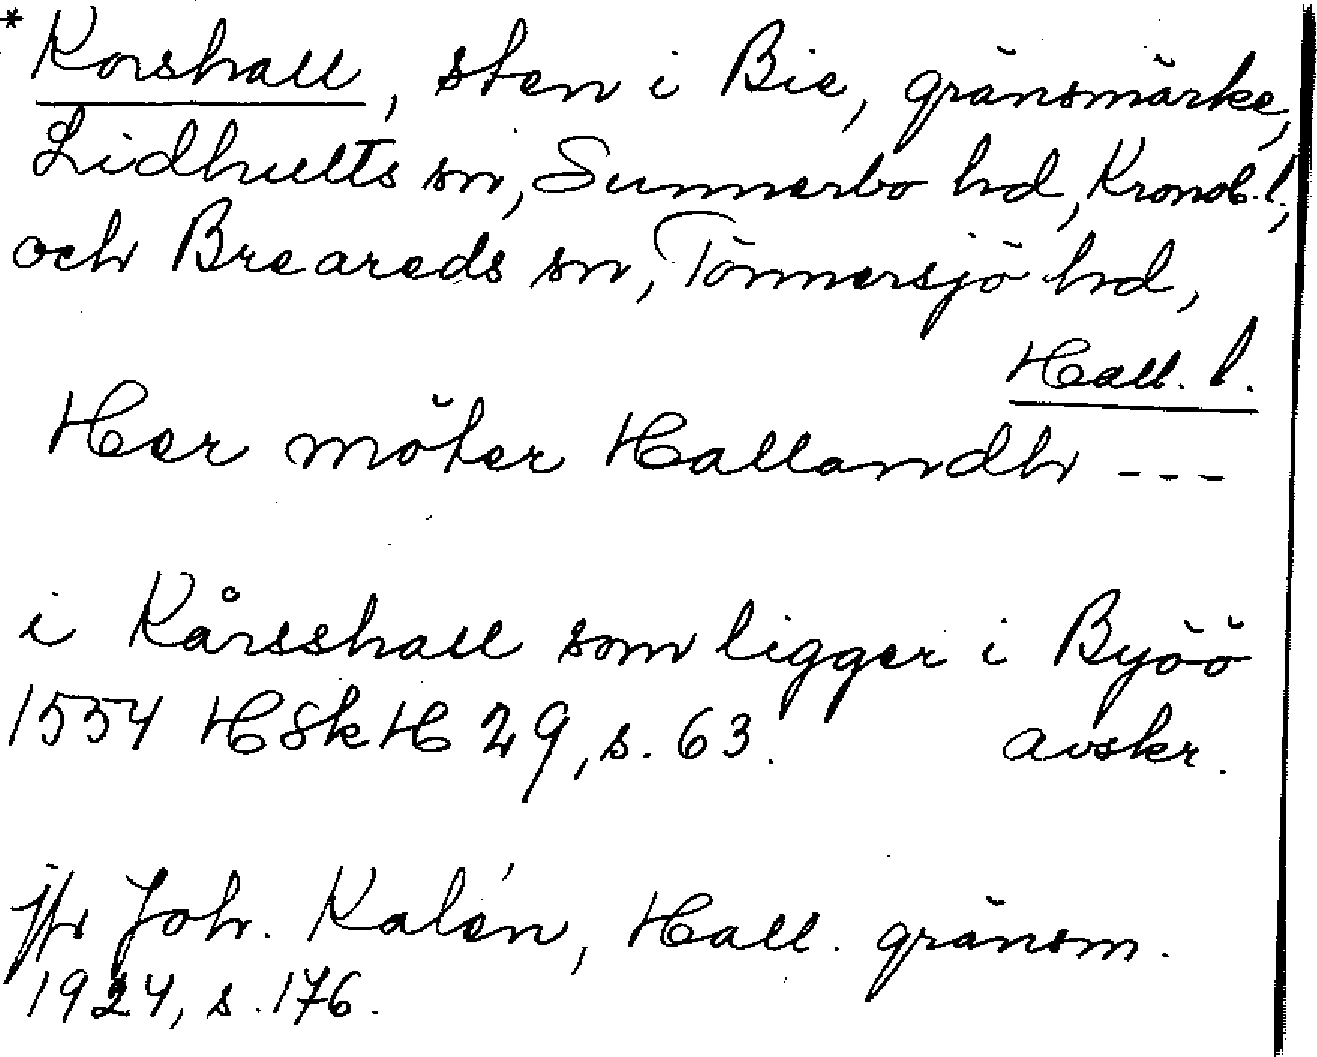 * Korshall, sten i Bie, gränsmärke,
Lidhults sn, Sunnerbo hd, Kronob. l.,
och Breareds sn, Tönnersjö hd,
Hall. l.
Her möter Hallandh ---
i Kårsshall som ligger i Byöö
1554 HSkH 29, s. 63. avskr.
jfr Joh. Kalén, Hall. gränsm.
1924, s. 176.